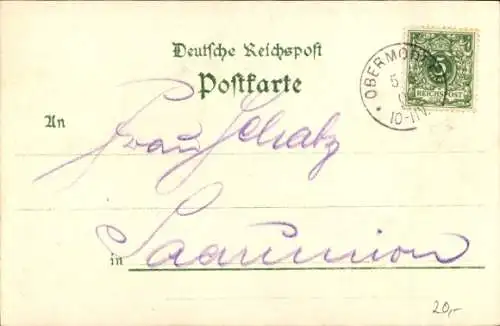 Deutsche Reichspost
Postkarte
5
REICHSPOST
* OBERMO
5
10-11
An
Frau Schatz
in Saarunion
20,-